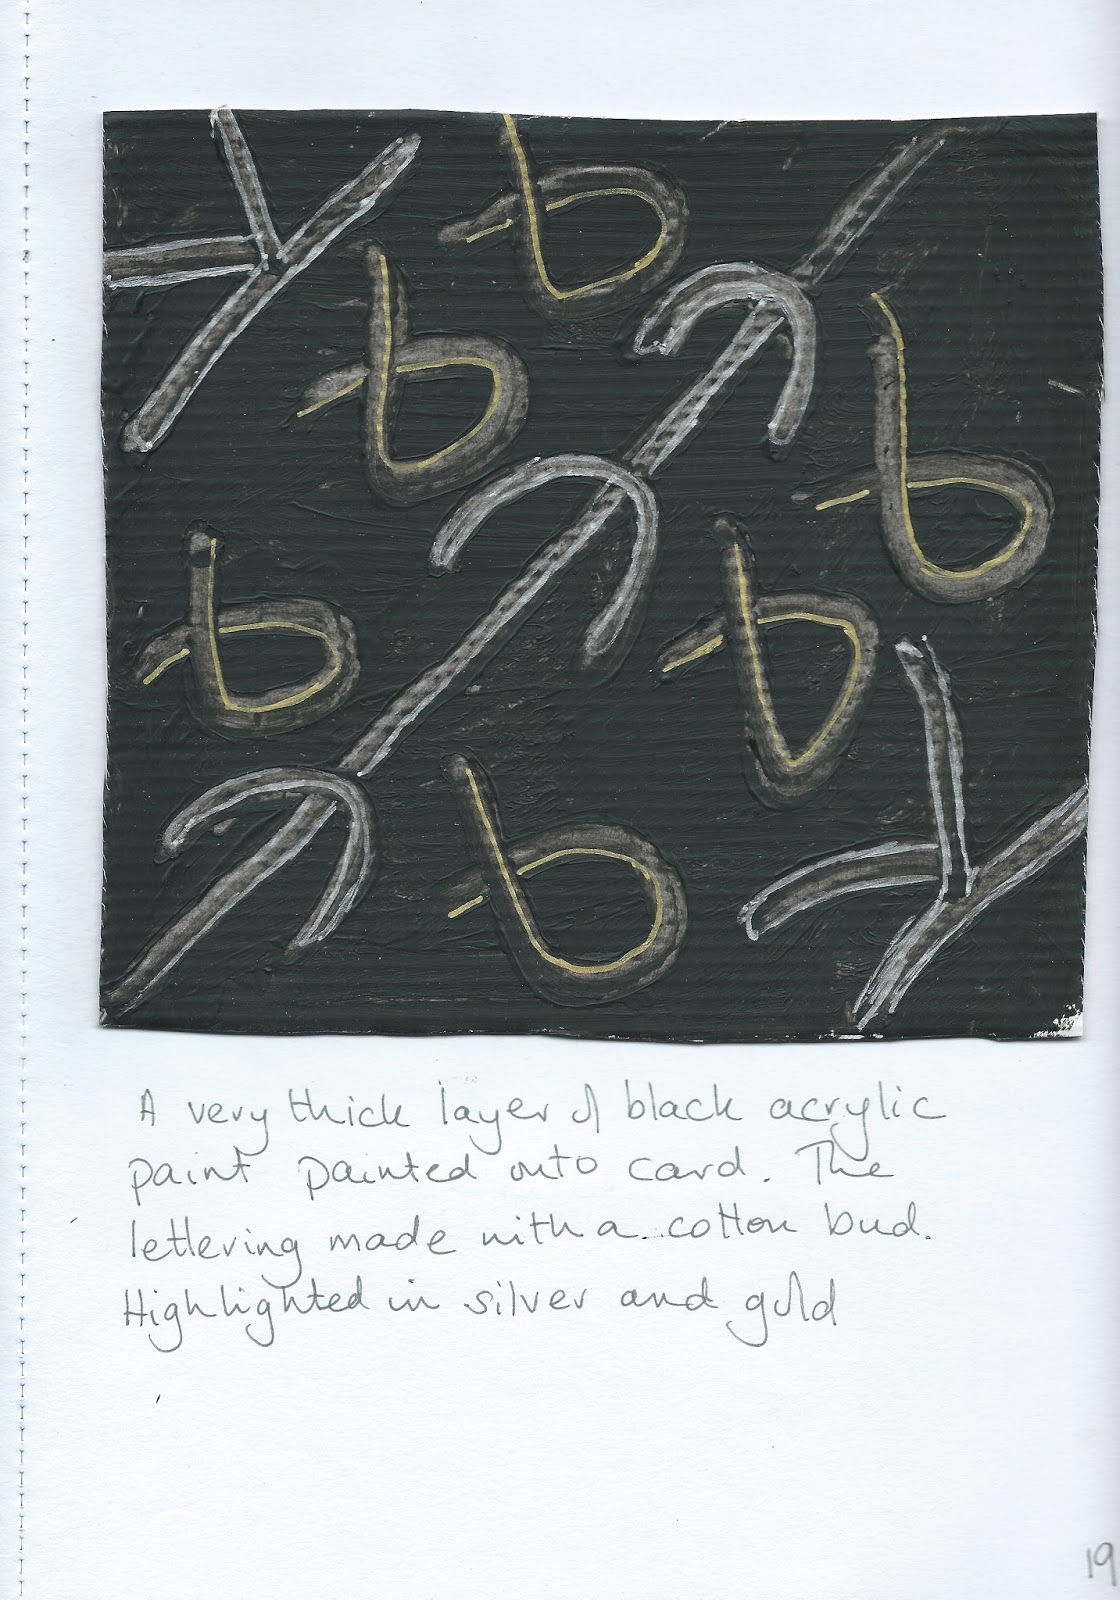 A very thick layer of black acrylic
paint painted onto card. The
lettering made with a cotton bud.
Highlighted in silver and gold
19